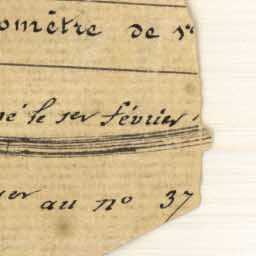 omètre de
né le 1er février
au nº 37